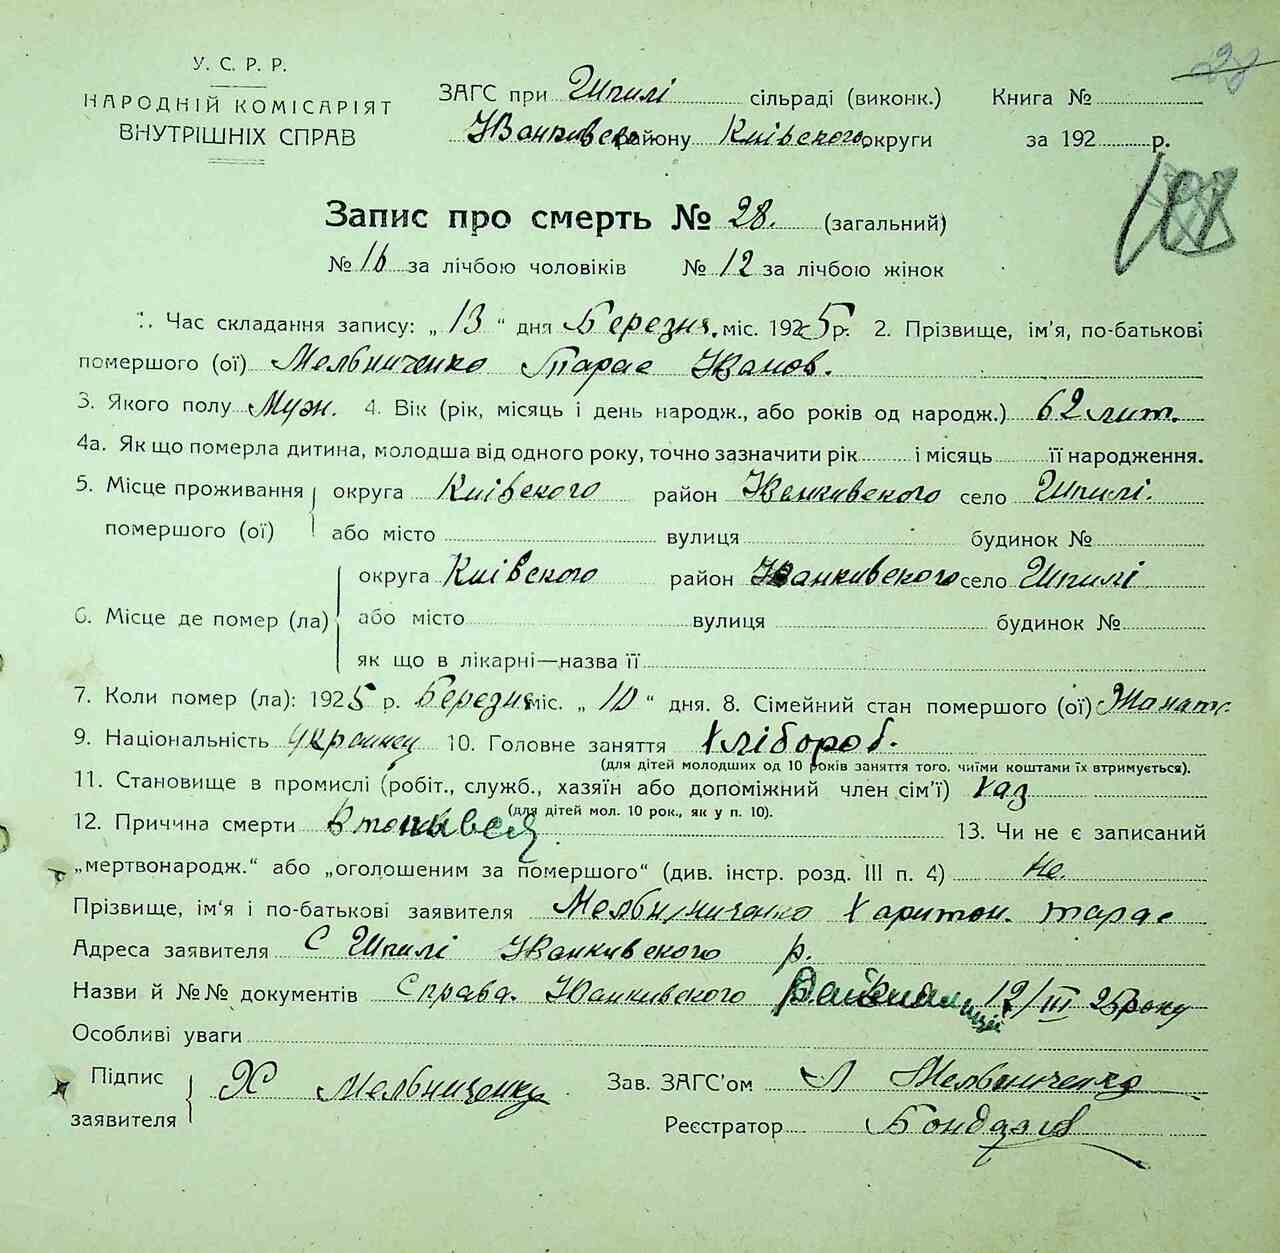 У. С. Р. Р.
НАРОДНІЙ КОМІСАРІЯТ
ВНУТРІШНІХ СПРАВ
ЗАГС при Шпилі сільраді (виконк.) Книга №
Иванкивского району Київского округи за 192 р.
28
101
Запис про смерть № 28. (загальний)
№ 16 за лічбою чоловіків № 12 за лічбою жінок
1. Час складання запису: „ 13 “ дня Березня. міс. 1925 р. 2. Прізвище, ім'я, по-батькові
помершого (ої) Мельниченко Тарас Иванов.
3. Якого полу Муж. 4. Вік (рік, місяць і день народж., або років од народж.) 62 лит.
4а. Як що померла дитина, молодша від одного року, точно зазначити рік і місяць її народження.
5. Місце проживання округа Київского район Иванкивского село Шпилі.
помершого (ої) або місто вулиця будинок №
округа Київского район Иванкивского село Шпилі
6. Місце де помер (ла) або місто вулиця будинок №
як що в лікарні—назва її
7. Коли помер (ла): 1925 р. Березня міс. „ 10 “ дня. 8. Сімейний стан помершого (ої) Жонат.
9. Національність Украинец 10. Головне заняття Хлібороб.
(для дітей молодших од 10 років заняття того, чиїми коштами їх втримується).
11. Становище в промислі (робіт., служб., хазяїн або допоміжний член сім'ї) Хаз
(для дітей мол. 10 рок., як у п. 10).
12. Причина смерти Втопывся 13. Чи не є записаний
„мертвонародж.“ або „оголошеним за помершого“ (див. інстр. розд. III п. 4) Не.
Прізвище, ім'я і по-батькові заявителя Мельниченко Харитон. Тарас
Адреса заявителя С Шпилі Иванкивского р.
Назви й №№ документів Справа. Иванкивского 12/III 25 року
Особливі уваги
Підпис заявителя Х Мельниценко Зав. ЗАГС'ом Л Мельниченко
Реєстратор Бондарев